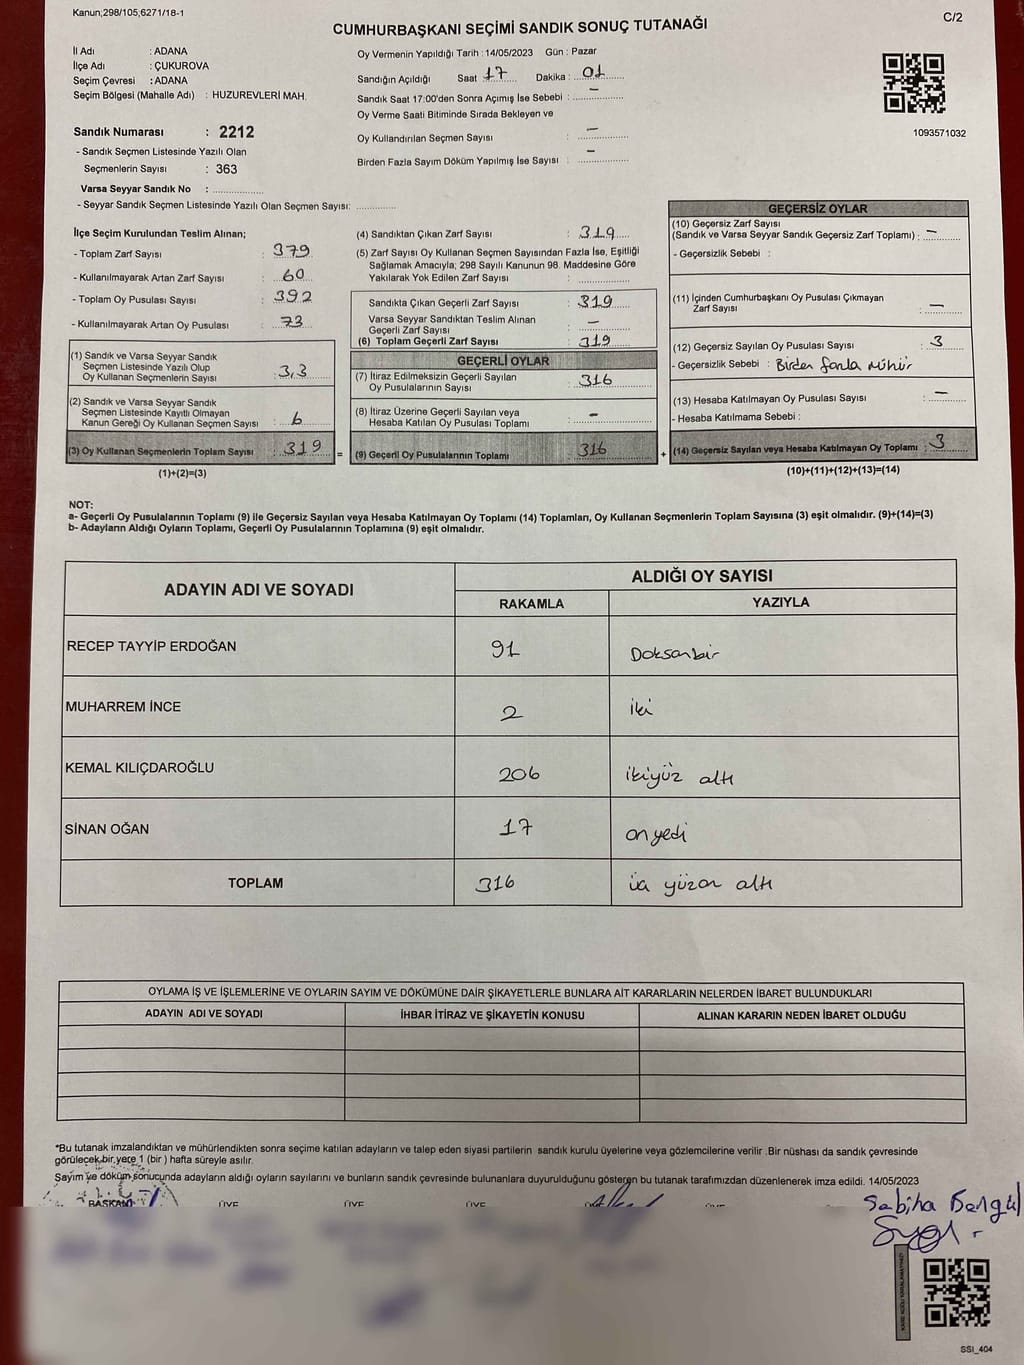 Kanun;298/105,6271/18-1
C/2
CUMHURBAŞKANI SEÇİMİ SANDIK SONUÇ TUTANAĞI
İl Adı : ADANA
İlçe Adı : ÇUKUROVA
Seçim Çevresi : ADANA
Seçim Bölgesi (Mahalle Adı) : HUZUREVLERİ MAH.
Sandık Numarası : 2212
- Sandık Seçmen Listesinde Yazılı Olan
Seçmenlerin Sayısı : 363
Varsa Seyyar Sandık No :
- Seyyar Sandık Seçmen Listesinde Yazılı Olan Seçmen Sayısı:
Oy Vermenin Yapıldığı Tarih : 14/05/2023 Gün : Pazar
Sandığın Açıldığı Saat 17 Dakika : 01
Sandık Saat 17:00'den Sonra Açımış İse Sebebi : -
Oy Verme Saati Bitiminde Sırada Bekleyen ve
Oy Kullandırılan Seçmen Sayısı : -
Birden Fazla Sayım Döküm Yapılmış İse Sayısı : -
1093571032
İlçe Seçim Kurulundan Teslim Alınan;
- Toplam Zarf Sayısı : 379
- Kullanılmayarak Artan Zarf Sayısı : 60
- Toplam Oy Pusulası Sayısı : 392
- Kullanılmayarak Artan Oy Pusulası : 73
(1) Sandık ve Varsa Seyyar Sandık
Seçmen Listesinde Yazılı Olup
Oy Kullanan Seçmenlerin Sayısı : 313
(2) Sandık ve Varsa Seyyar Sandık
Seçmen Listesinde Kayıtlı Olmayan
Kanun Gereği Oy Kullanan Seçmen Sayısı : 6
(3) Oy Kullanan Seçmenlerin Toplam Sayısı : 319
(1)+(2)=(3)
=
(4) Sandıktan Çıkan Zarf Sayısı : 319
(5) Zarf Sayısı Oy Kullanan Seçmen Sayısından Fazla İse, Eşitliği
Sağlamak Amacıyla; 298 Sayılı Kanunun 98. Maddesine Göre
Yakılarak Yok Edilen Zarf Sayısı :
Sandıkta Çıkan Geçerli Zarf Sayısı : 319
Varsa Seyyar Sandıktan Teslim Alınan
Geçerli Zarf Sayısı : -
(6) Toplam Geçerli Zarf Sayısı : 319
GEÇERLİ OYLAR
(7) İtiraz Edilmeksizin Geçerli Sayılan
Oy Pusulalarının Sayısı : 316
(8) İtiraz Üzerine Geçerli Sayılan veya
Hesaba Katılan Oy Pusulası Toplamı : -
(9) Geçerli Oy Pusulalarının Toplamı 316
+
GEÇERSİZ OYLAR
(10) Geçersiz Zarf Sayısı
(Sandık ve Varsa Seyyar Sandık Geçersiz Zarf Toplamı) : -
- Geçersizlik Sebebi :
(11) İçinden Cumhurbaşkanı Oy Pusulası Çıkmayan
Zarf Sayısı : -
(12) Geçersiz Sayılan Oy Pusulası Sayısı : 3
- Geçersizlik Sebebi : Birden fazla mühür
(13) Hesaba Katılmayan Oy Pusulası Sayısı : -
- Hesaba Katılmama Sebebi :
(14) Geçersiz Sayılan veya Hesaba Katılmayan Oy Toplamı : 3
(10)+(11)+(12)+(13)=(14)
NOT:
a- Geçerli Oy Pusulalarının Toplamı (9) ile Geçersiz Sayılan veya Hesaba Katılmayan Oy Toplamı (14) Toplamları, Oy Kullanan Seçmenlerin Toplam Sayısına (3) eşit olmalıdır. (9)+(14)=(3)
b- Adayların Aldığı Oyların Toplamı, Geçerli Oy Pusulalarının Toplamına (9) eşit olmalıdır.
ADAYIN ADI VE SOYADI
ALDIĞI OY SAYISI
RAKAMLA YAZIYLA
RECEP TAYYİP ERDOĞAN 91 Doksanbir
MUHARREM İNCE 2 iki
KEMAL KILIÇDAROĞLU 206 ikiyüz altı
SİNAN OĞAN 17 onyedi
TOPLAM 316 üç yüzon altı
OYLAMA İŞ VE İŞLEMLERİNE VE OYLARIN SAYIM VE DÖKÜMÜNE DAİR ŞİKAYETLERLE BUNLARA AİT KARARLARIN NELERDEN İBARET BULUNDUKLARI
ADAYIN ADI VE SOYADI İHBAR İTİRAZ VE ŞİKAYETİN KONUSU ALINAN KARARIN NEDEN İBARET OLDUĞU
*Bu tutanak imzalandıktan ve mühürlendikten sonra seçime katılan adayların ve talep eden siyasi partilerin sandık kurulu üyelerine veya gözlemcilerine verilir .Bir nüshası da sandık çevresinde
görülecek bir yere 1 (bir ) hafta süreyle asılır.
Sayım ve döküm sonucunda adayların aldığı oyların sayılarını ve bunların sandık çevresinde bulunanlara duyurulduğunu gösteren bu tutanak tarafımızdan düzenlenerek imza edildi. 14/05/2023
BAŞKAN ÜYE ÜYE ÜYE
Sabiha
SSI_404